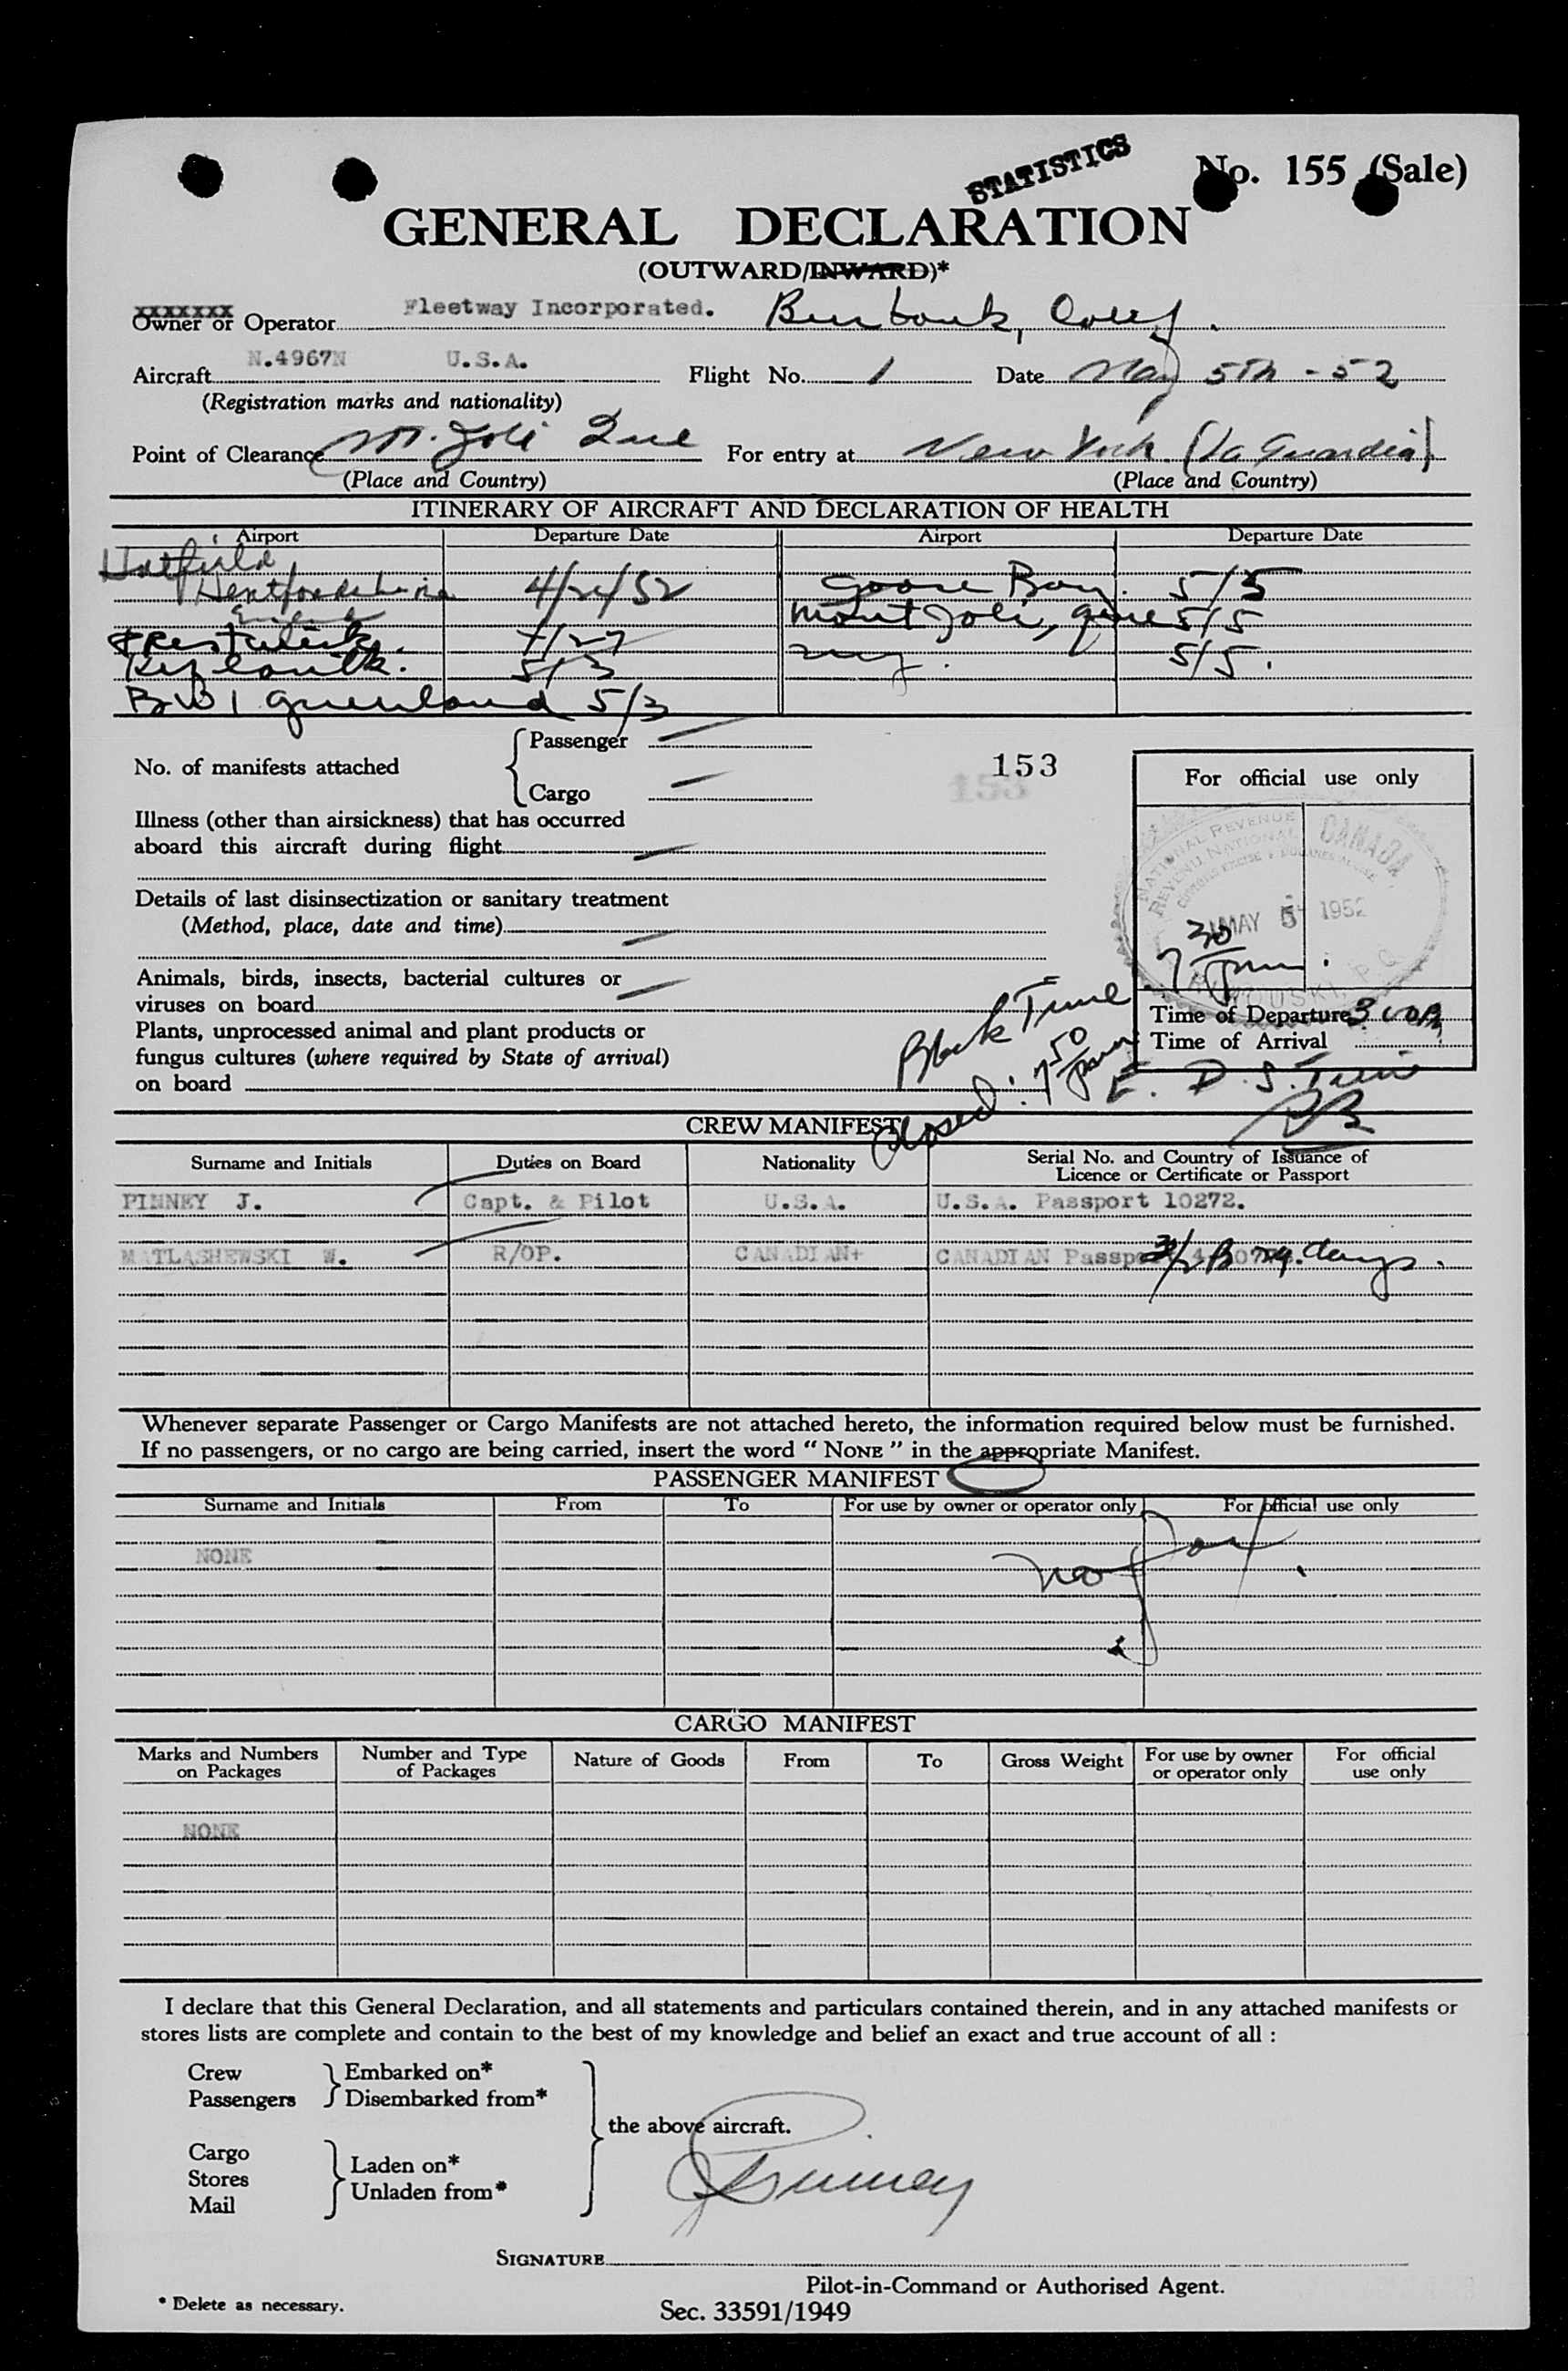 STATISTICS
No. 155 (Sale)
GENERAL DECLARATION
(OUTWARD/INWARD)*
XXXXXXX
Owner or Operator Fleetway Incorporated. Burbank, Calif.
Aircraft N.4967N U.S.A. Flight No. 1 Date May 5th - 52
(Registration marks and nationality)
Point of Clearance Mt. Joli Que For entry at New York (La Guardia)
(Place and Country) (Place and Country)
ITINERARY OF AIRCRAFT AND DECLARATION OF HEALTH
Airport Departure Date Airport Departure Date
Hatfield
Hertfordshire 4/24/52 Goose Bay. 5/5
England Mount Joli, Que 5/5
Prestwick. 4/27 5/5.
Keflavik. 5/3
BW1 Greenland 5/3
No. of manifests attached
Passenger
Cargo
153
153
For official use only
Illness (other than airsickness) that has occurred
aboard this aircraft during flight
Details of last disinsectization or sanitary treatment
(Method, place, date and time)
NATIONAL REVENUE
REVENU NATIONAL
CANADA
MAY 5 1952
RIMOUSKI, P.Q.
7 30 pm.
Animals, birds, insects, bacterial cultures or
viruses on board
Plants, unprocessed animal and plant products or
fungus cultures (where required by State of arrival)
on board
Block Time
Closed: 7 50
Time of Departure
Time of Arrival
E. D. S. Time
CREW MANIFEST
Surname and Initials Duties on Board Nationality Serial No. and Country of Issuance of
Licence or Certificate or Passport
PINNEY J. Capt. & Pilot U.S.A. U.S.A. Passport 10272.
MATLASHEWSKI W. R/OP. CANADIAN+ CANADIAN Passport 29 days.
Whenever separate Passenger or Cargo Manifests are not attached hereto, the information required below must be furnished.
If no passengers, or no cargo are being carried, insert the word “ NONE ” in the appropriate Manifest.
PASSENGER MANIFEST
Surname and Initials From To For use by owner or operator only For official use only
NONE
no
CARGO MANIFEST
Marks and Numbers on Packages Number and Type of Packages Nature of Goods From To Gross Weight For use by owner or operator only For official use only
NONE
I declare that this General Declaration, and all statements and particulars contained therein, and in any attached manifests or
stores lists are complete and contain to the best of my knowledge and belief an exact and true account of all :
Crew
Passengers
Embarked on*
Disembarked from*
the above aircraft.
Cargo
Stores
Mail
Laden on*
Unladen from*
J Pinney
SIGNATURE
Pilot-in-Command or Authorised Agent.
* Delete as necessary.
Sec. 33591/1949